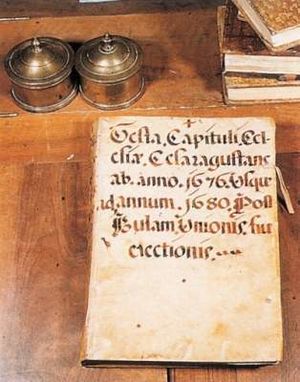 Gesta, Capituli, Ecl-
esiæ, Cesaraugustane
ab. anno. 1676. Usqz
ad annum. 1680. Post
Bulam, Unionis, siue
erectionis.